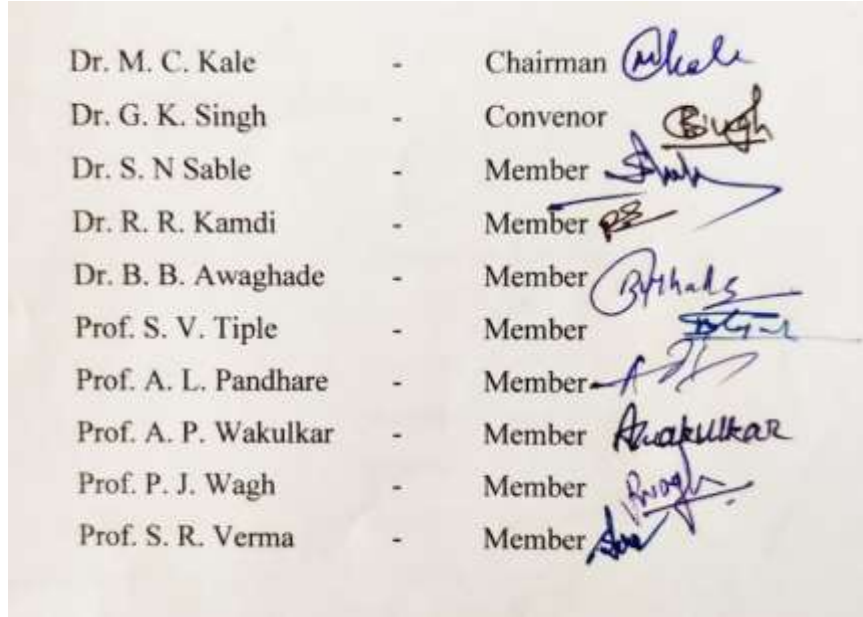 Dr. M. C. Kale - Chairman
Dr. G. K. Singh - Convenor
Dr. S. N Sable - Member
Dr. R. R. Kamdi - Member
Dr. B. B. Awaghade - Member
Prof. S. V. Tiple - Member
Prof. A. L. Pandhare - Member
Prof. A. P. Wakulkar - Member Awakulkar
Prof. P. J. Wagh - Member
Prof. S. R. Verma - Member